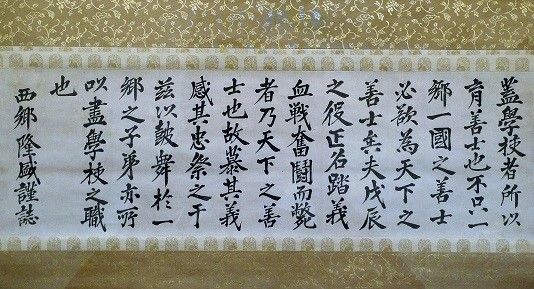 蓋學校者所以
育善士也不只一
鄉一國之善士
必欲為天下之
善士矣夫戊辰
之役正名踏義
血戰奮鬪而斃
者乃天下之善
士也故慕其義
感其忠祭之于
茲以鼓舞於一
鄉之子弟亦所
以盡學校之職
也
西鄉隆盛謹誌